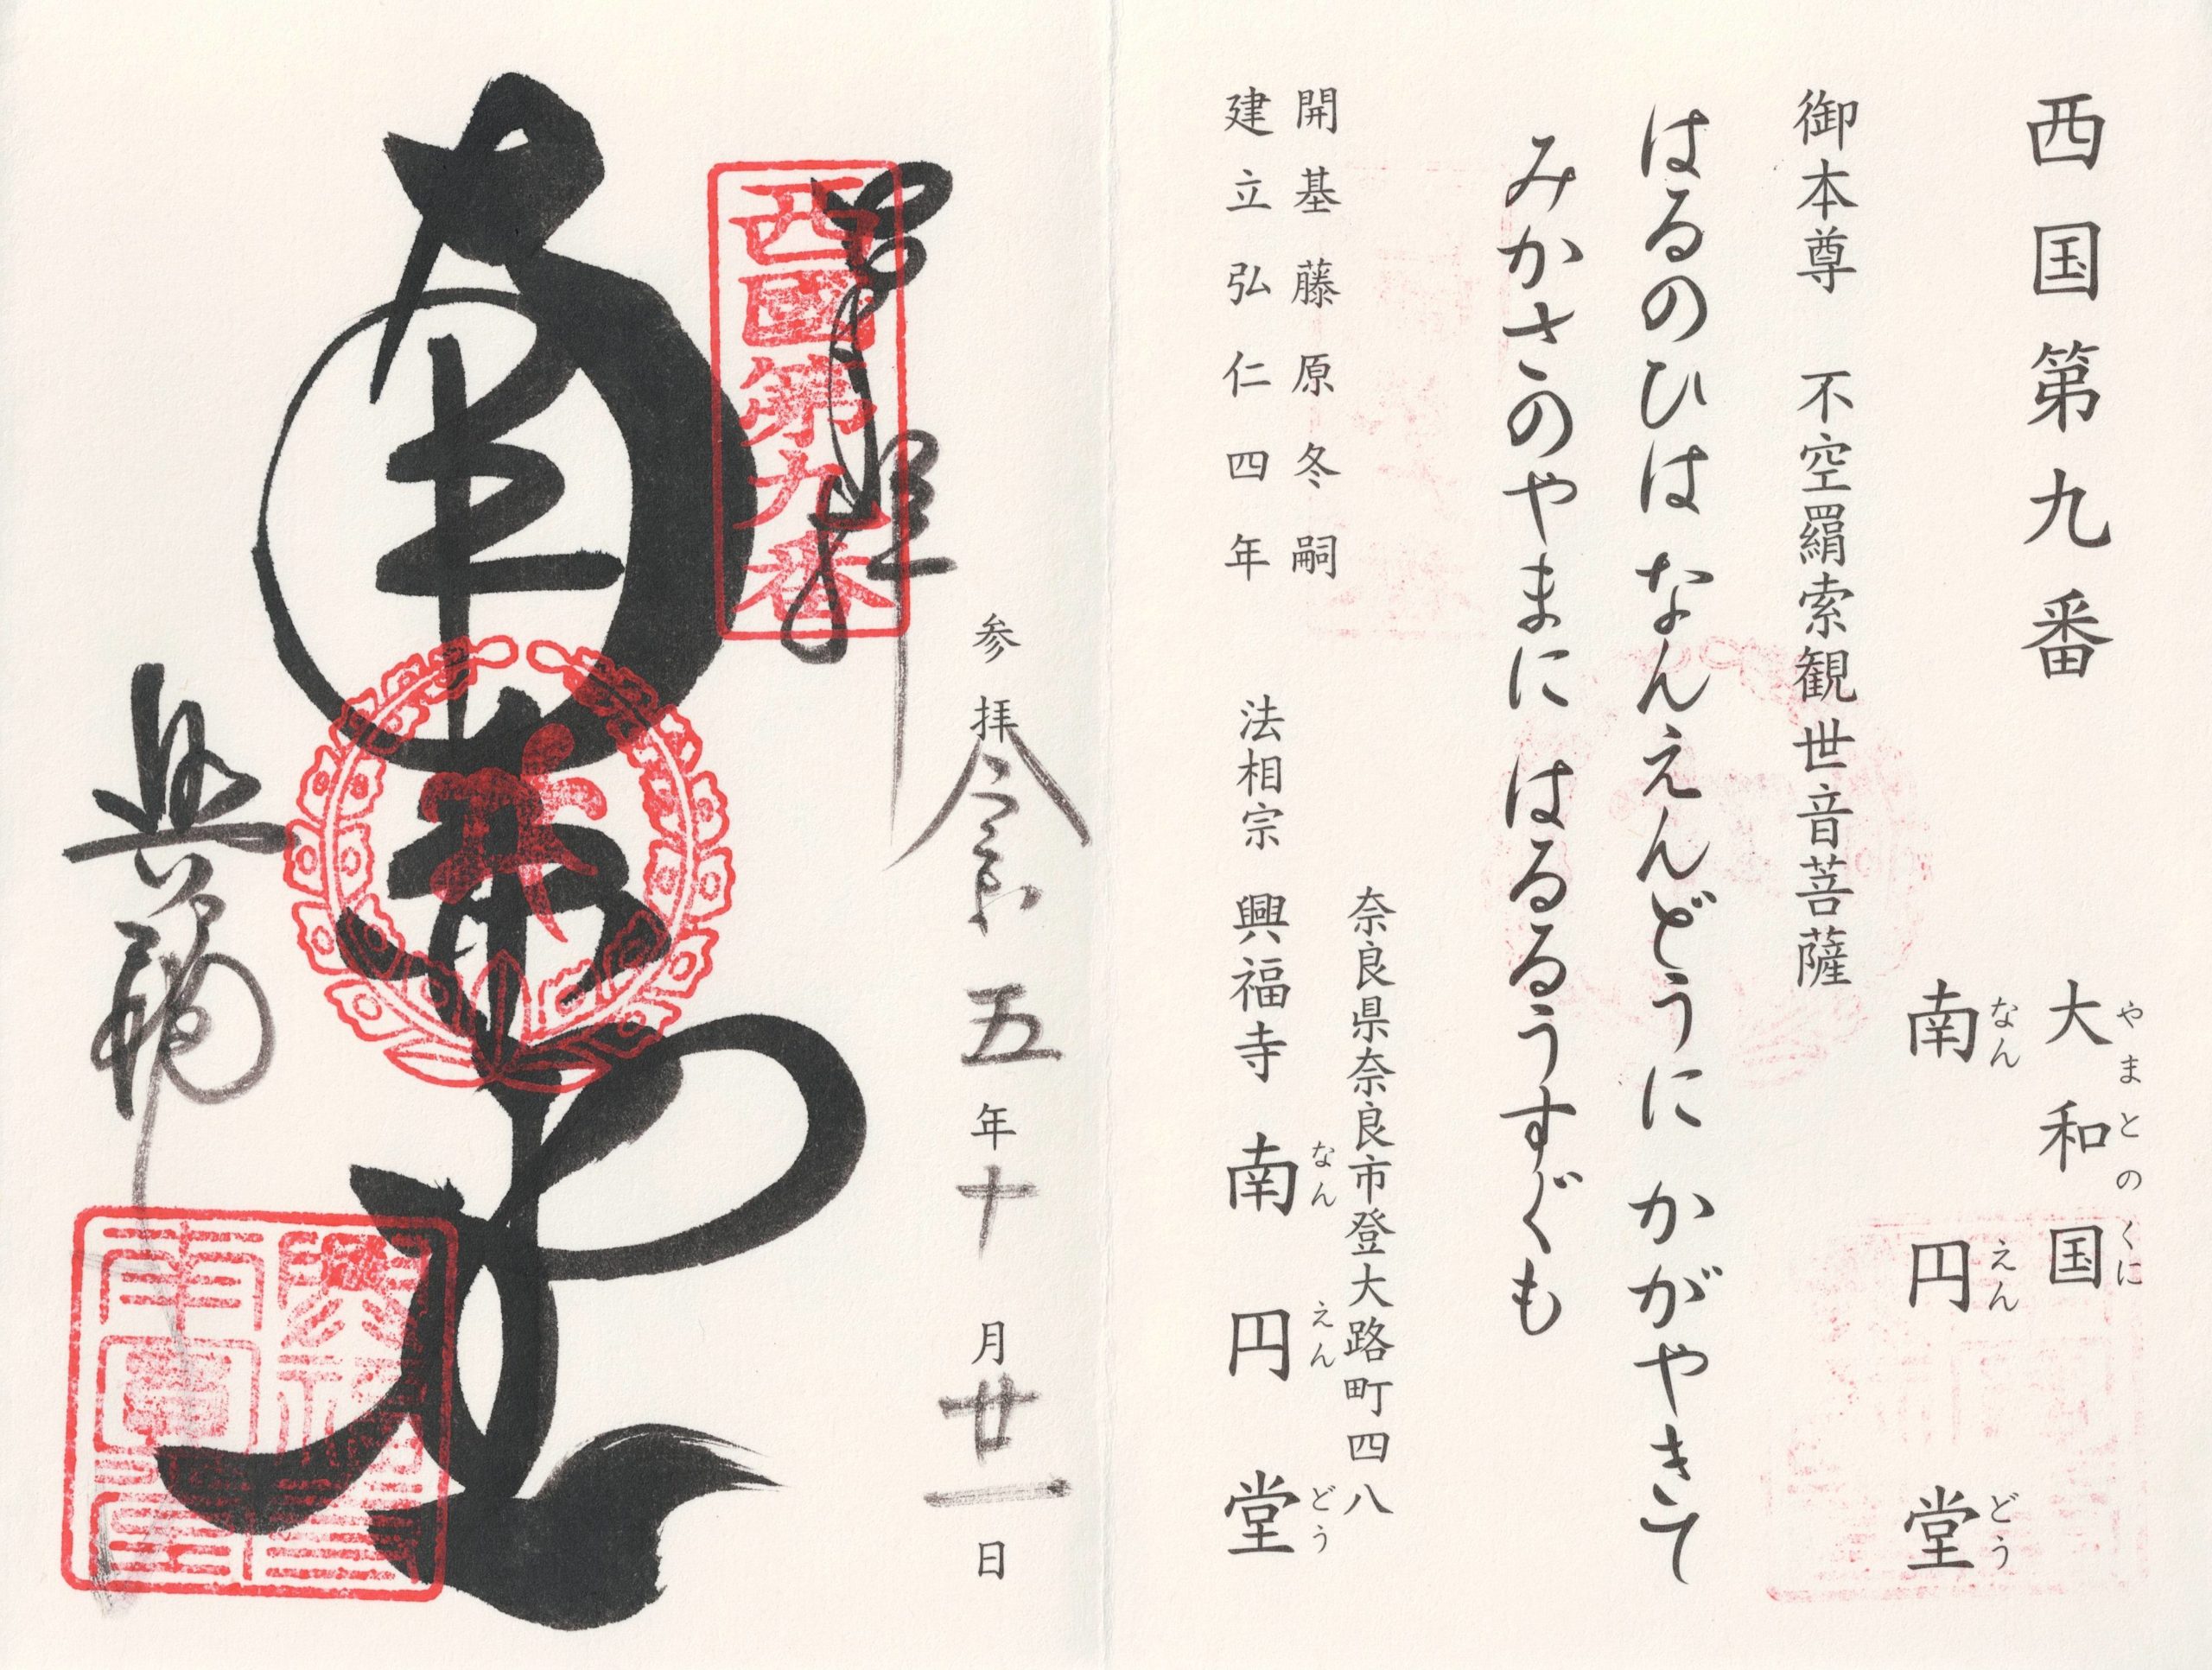 西国第九番
やまとのくに
大和国
なんえんどう
南円堂
御本尊 不空羂索観世音菩薩
はるのひは なんえんどうに かがやきて
みかさのやまに はるるうすぐも
奈良県奈良市登大路町四八
開基藤原冬嗣
建立弘仁四年
なんえんどう
法相宗 興福寺 南円堂
参拝 令和五年十月廿一日
奉拝
西國第九番
興福
興福寺
南圓堂